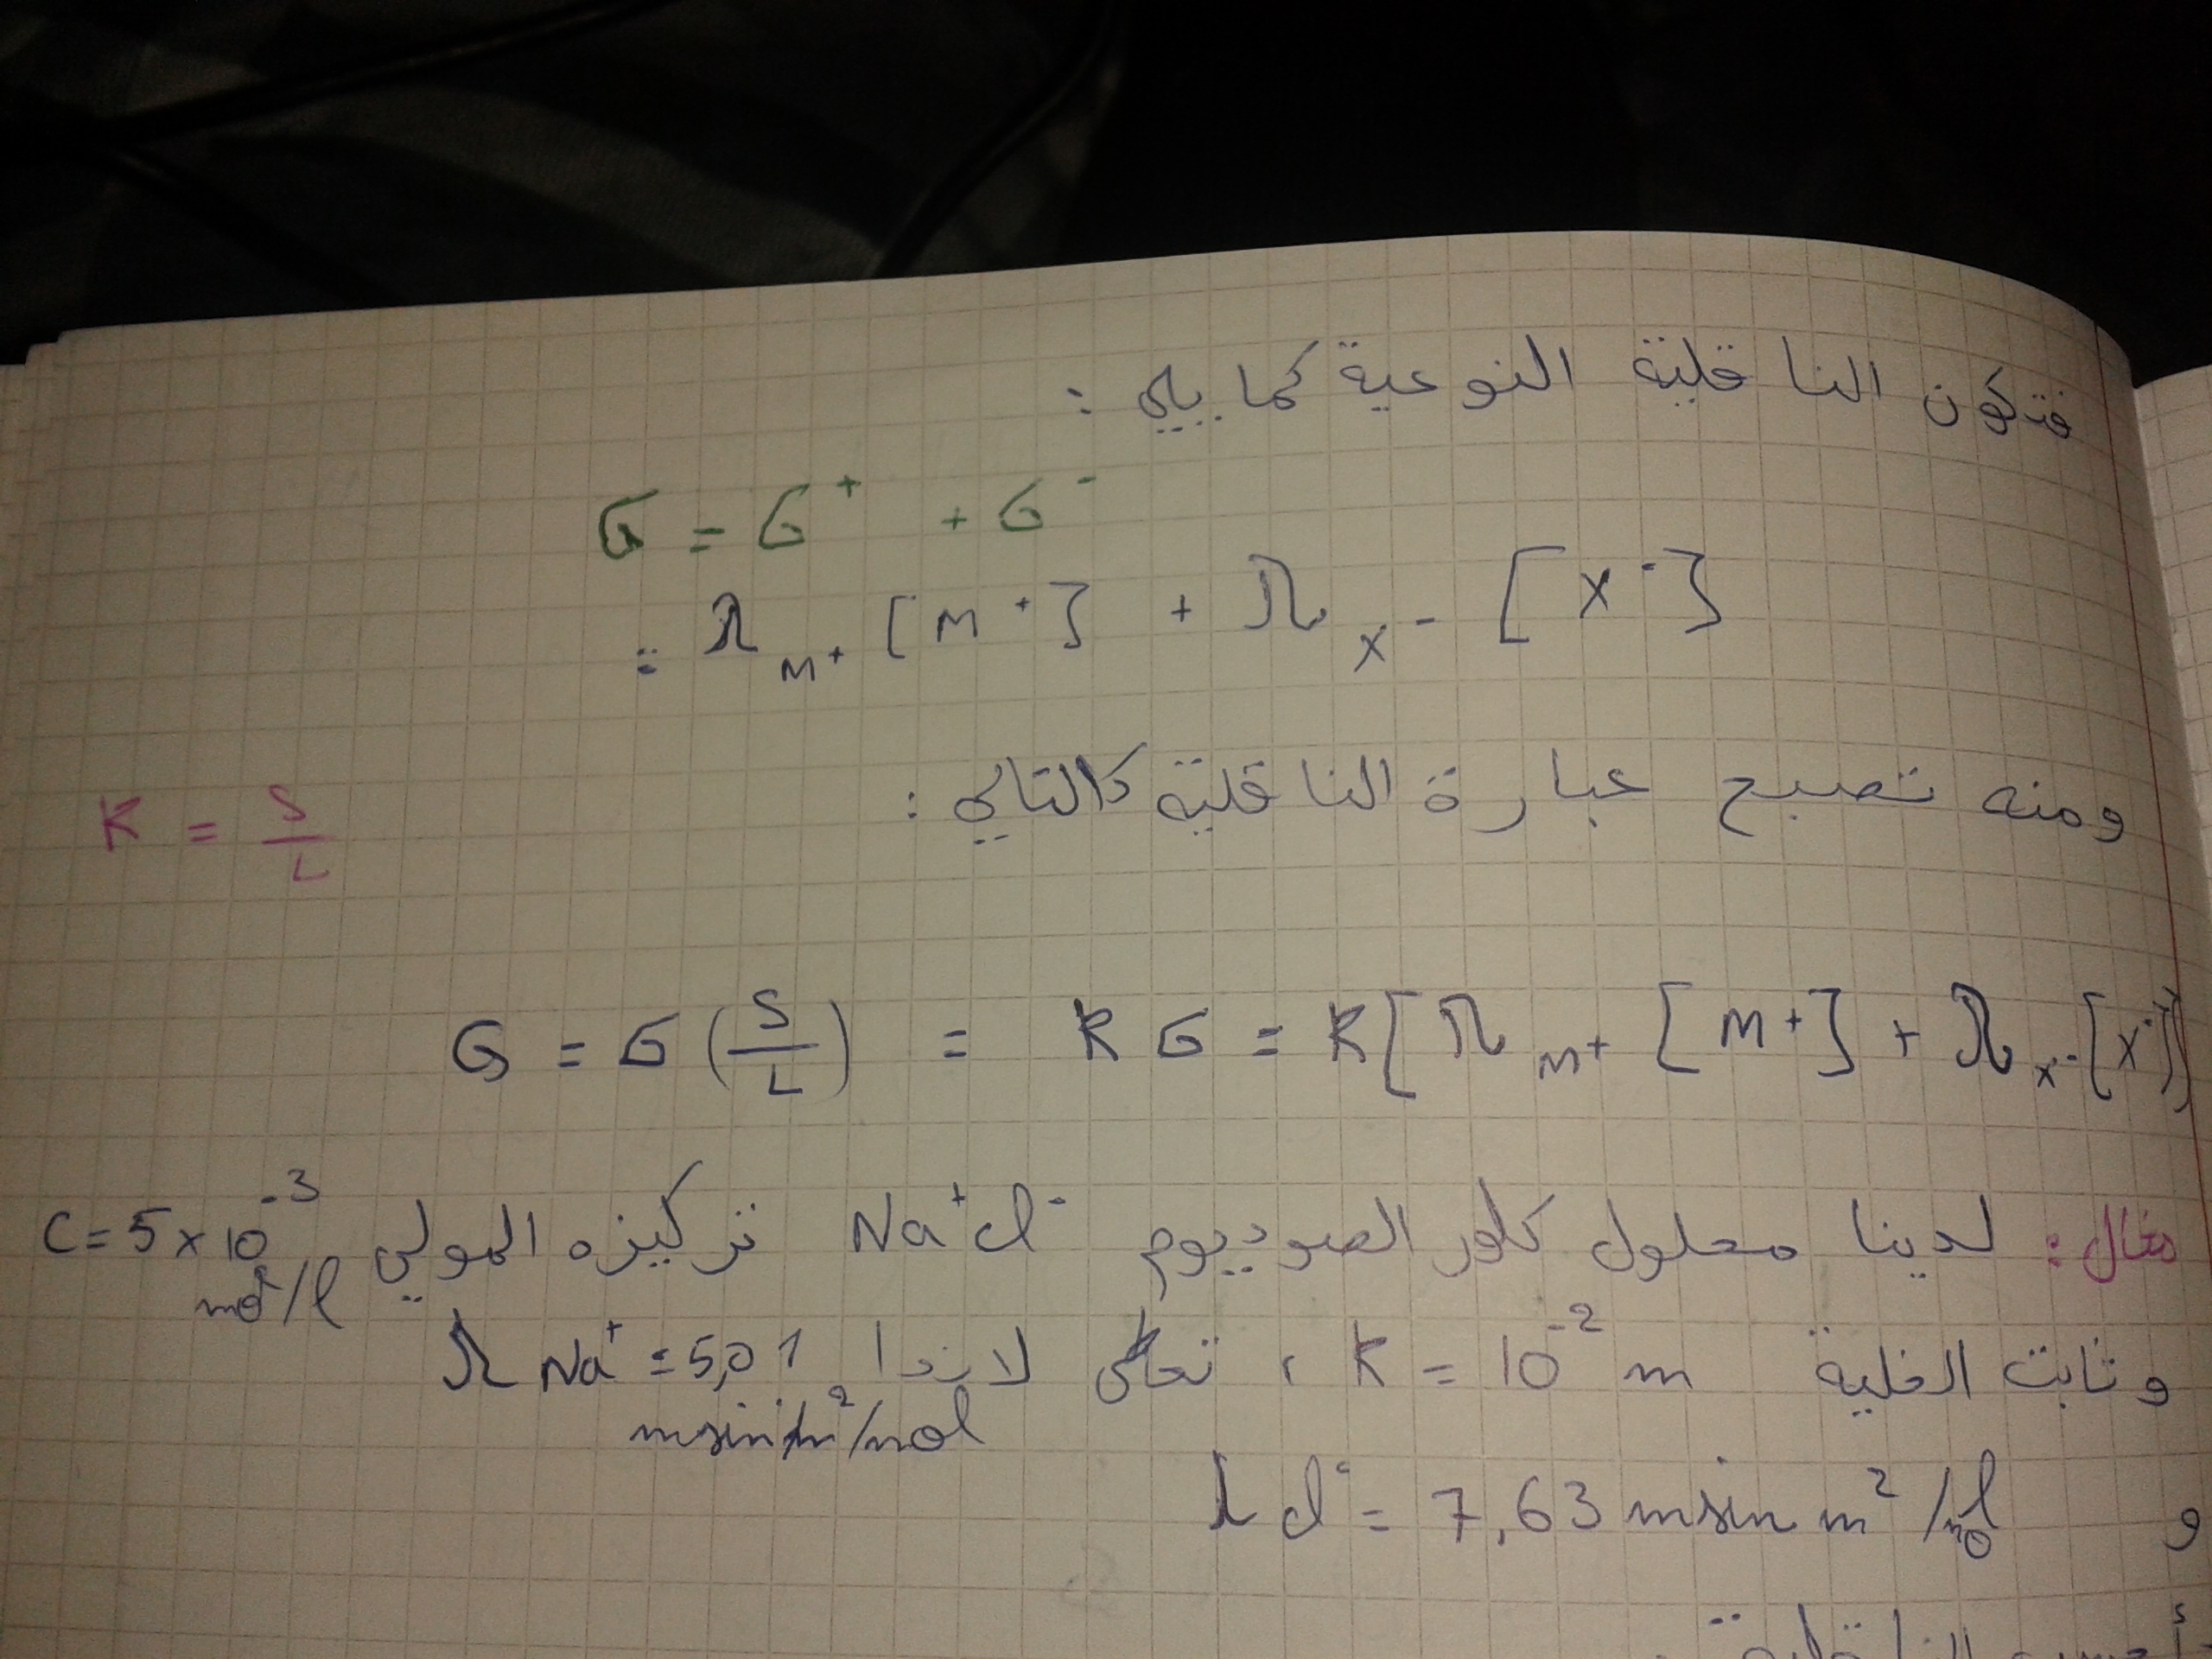 فتكون الناقلية النوعية كما يلي :
σ = σ⁺ + σ⁻
= λ M⁺ [M⁺] + λ X⁻ [X⁻]
ومنه تصبح عبارة الناقلية كالتالي :
K = S/L
G = σ (S/L) = K σ = K[λ M⁺ [M⁺] + λ X⁻ [X⁻])
مثال : لدينا محلول كلور الصوديوم Na⁺Cl⁻ تركيزه المولي C = 5 × 10⁻³ mol/l
وثابت الخلية K = 10⁻² m ، تعطى لاندا λ Na⁺ = 5,01 msin m²/mol
و λ Cl⁻ = 7,63 msin m²/mol
أحسب الناقلية